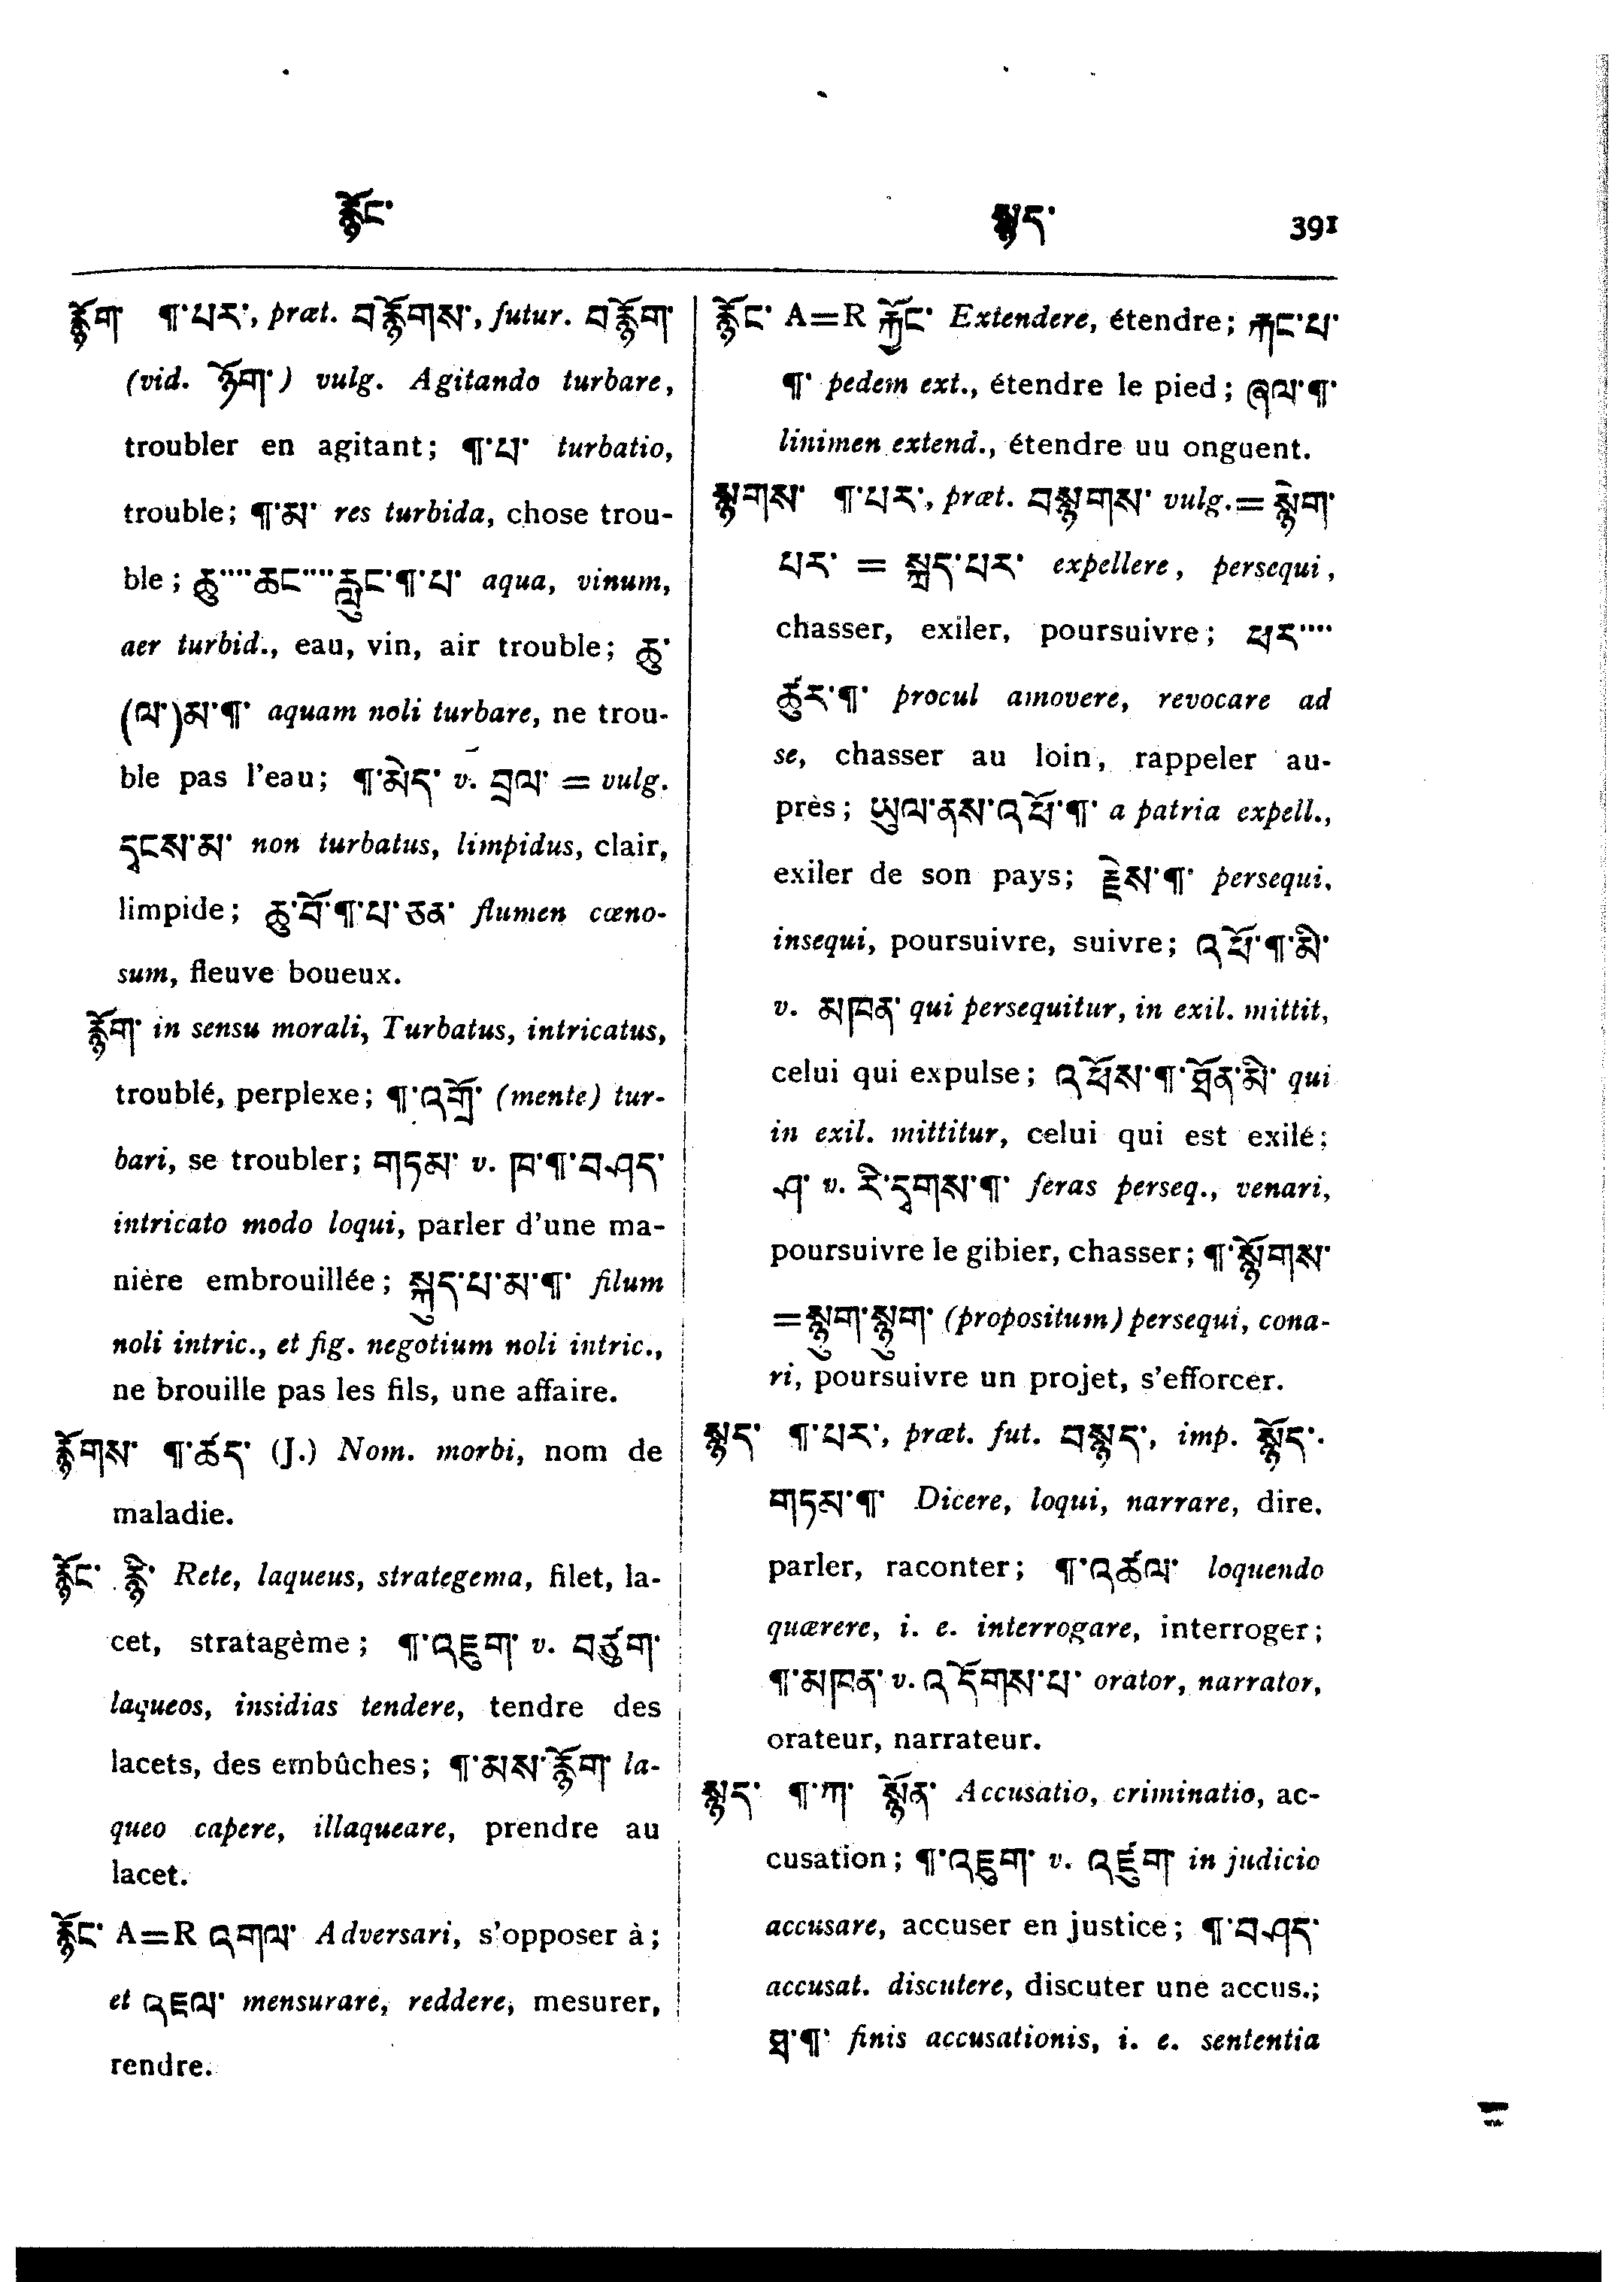 རྙོང་ སྙད་ 391
རྙོག་ ¶་པར་, præt. བརྙོགས་, futur. བརྙོག་
(vid. ཉོག་) vulg. Agitando turbare,
troubler en agitant; ¶་པ་ turbatio,
trouble; ¶་མ་ res turbida, chose trou-
ble; ཆུ་'''' ཆང་'''' རླུང་¶་པ་ aqua, vinum,
aer turbid., eau, vin, air trouble; ཆུ་
(ལ་)མ་¶་ aquam noli turbare, ne trou-
ble pas l'eau; ¶་མེད་ v. བྲལ་ = vulg.
དྭངས་མ་ non turbatus, limpidus, clair,
limpide; ཆུ་བོ་¶་པ་ཅན་ flumen cœno-
sum, fleuve boueux.
རྙོག་ in sensu morali, Turbatus, intricatus,
troublé, perplexe; ¶་འགྲོ་ (mente) tur-
bari, se troubler; གཏམ་ v. ཁ་¶་བཤད་
intricato modo loqui, parler d'une ma-
nière embrouillée; སྐུད་པ་མ་¶་ filum
noli intric., et fig. negotium noli intric.,
ne brouille pas les fils, une affaire.
རྙོགས་ ¶་ཚད་ (J.) Nom. morbi, nom de
maladie.
རྙོང་ རྙི་ Rete, laqueus, strategema, filet, la-
cet, stratagème; ¶་འཛུག་ v. བཙུག་
laqueos, insidias tendere, tendre des
lacets, des embûches; ¶་མས་རྙོག་ la-
queo capere, illaqueare, prendre au
lacet.
རྙོང་ A=R འགལ་ Adversari, s'opposer à;
et འཇལ་ mensurare, reddere, mesurer,
rendre.
རྙོང་ A=R རྐྱོང་ Extendere, étendre; རྐང་པ་
¶་ pedem ext., étendre le pied; ཞལ་¶་
linimen extend., étendre uu onguent.
སྙགས་ ¶་པར་, præt. བསྙགས་ vulg.= སྙེག་
པར་ = སྐྲད་པར་ expellere, persequi,
chasser, exiler, poursuivre; ཕར་''''
ཚུར་¶་ procul amovere, revocare ad
se, chasser au loin, rappeler au-
près; ཡུལ་ནས་འཕྲོ་¶་ a patria expell.,
exiler de son pays; རྗེས་¶་ persequi,
insequi, poursuivre, suivre; འཕྲོ་¶་མི་
v. མཁན་ qui persequitur, in exil. mittit,
celui qui expulse; འཕྲོས་¶་ཐོན་མི་ qui
in exil. mittitur, celui qui est exilé;
ཤ་ v. རི་དྭགས་¶་ feras perseq., venari,
poursuivre le gibier, chasser; ¶་སྙོགས་
=སྙུག་སྙུག་ (propositum) persequi, cona-
ri, poursuivre un projet, s'efforcer.
སྙད་ ¶་པར་, præt. fut. བསྙད་, imp. སྙོད་.
གཏམ་¶་ Dicere, loqui, narrare, dire,
parler, raconter; ¶་འཚལ་ loquendo
quærere, i. e. interrogare, interroger;
¶་མཁན་ v. འདོགས་པ་ orator, narrator,
orateur, narrateur.
སྙད་ ¶་ཀ་ སྙོན་ Accusatio, criminatio, ac-
cusation; ¶་འཛུག་ v. འཛུག་ in judicio
accusare, accuser en justice; ¶་བཤད་
accusat. discutere, discuter une accus.;
¶་ finis accusationis, i. e. sententia